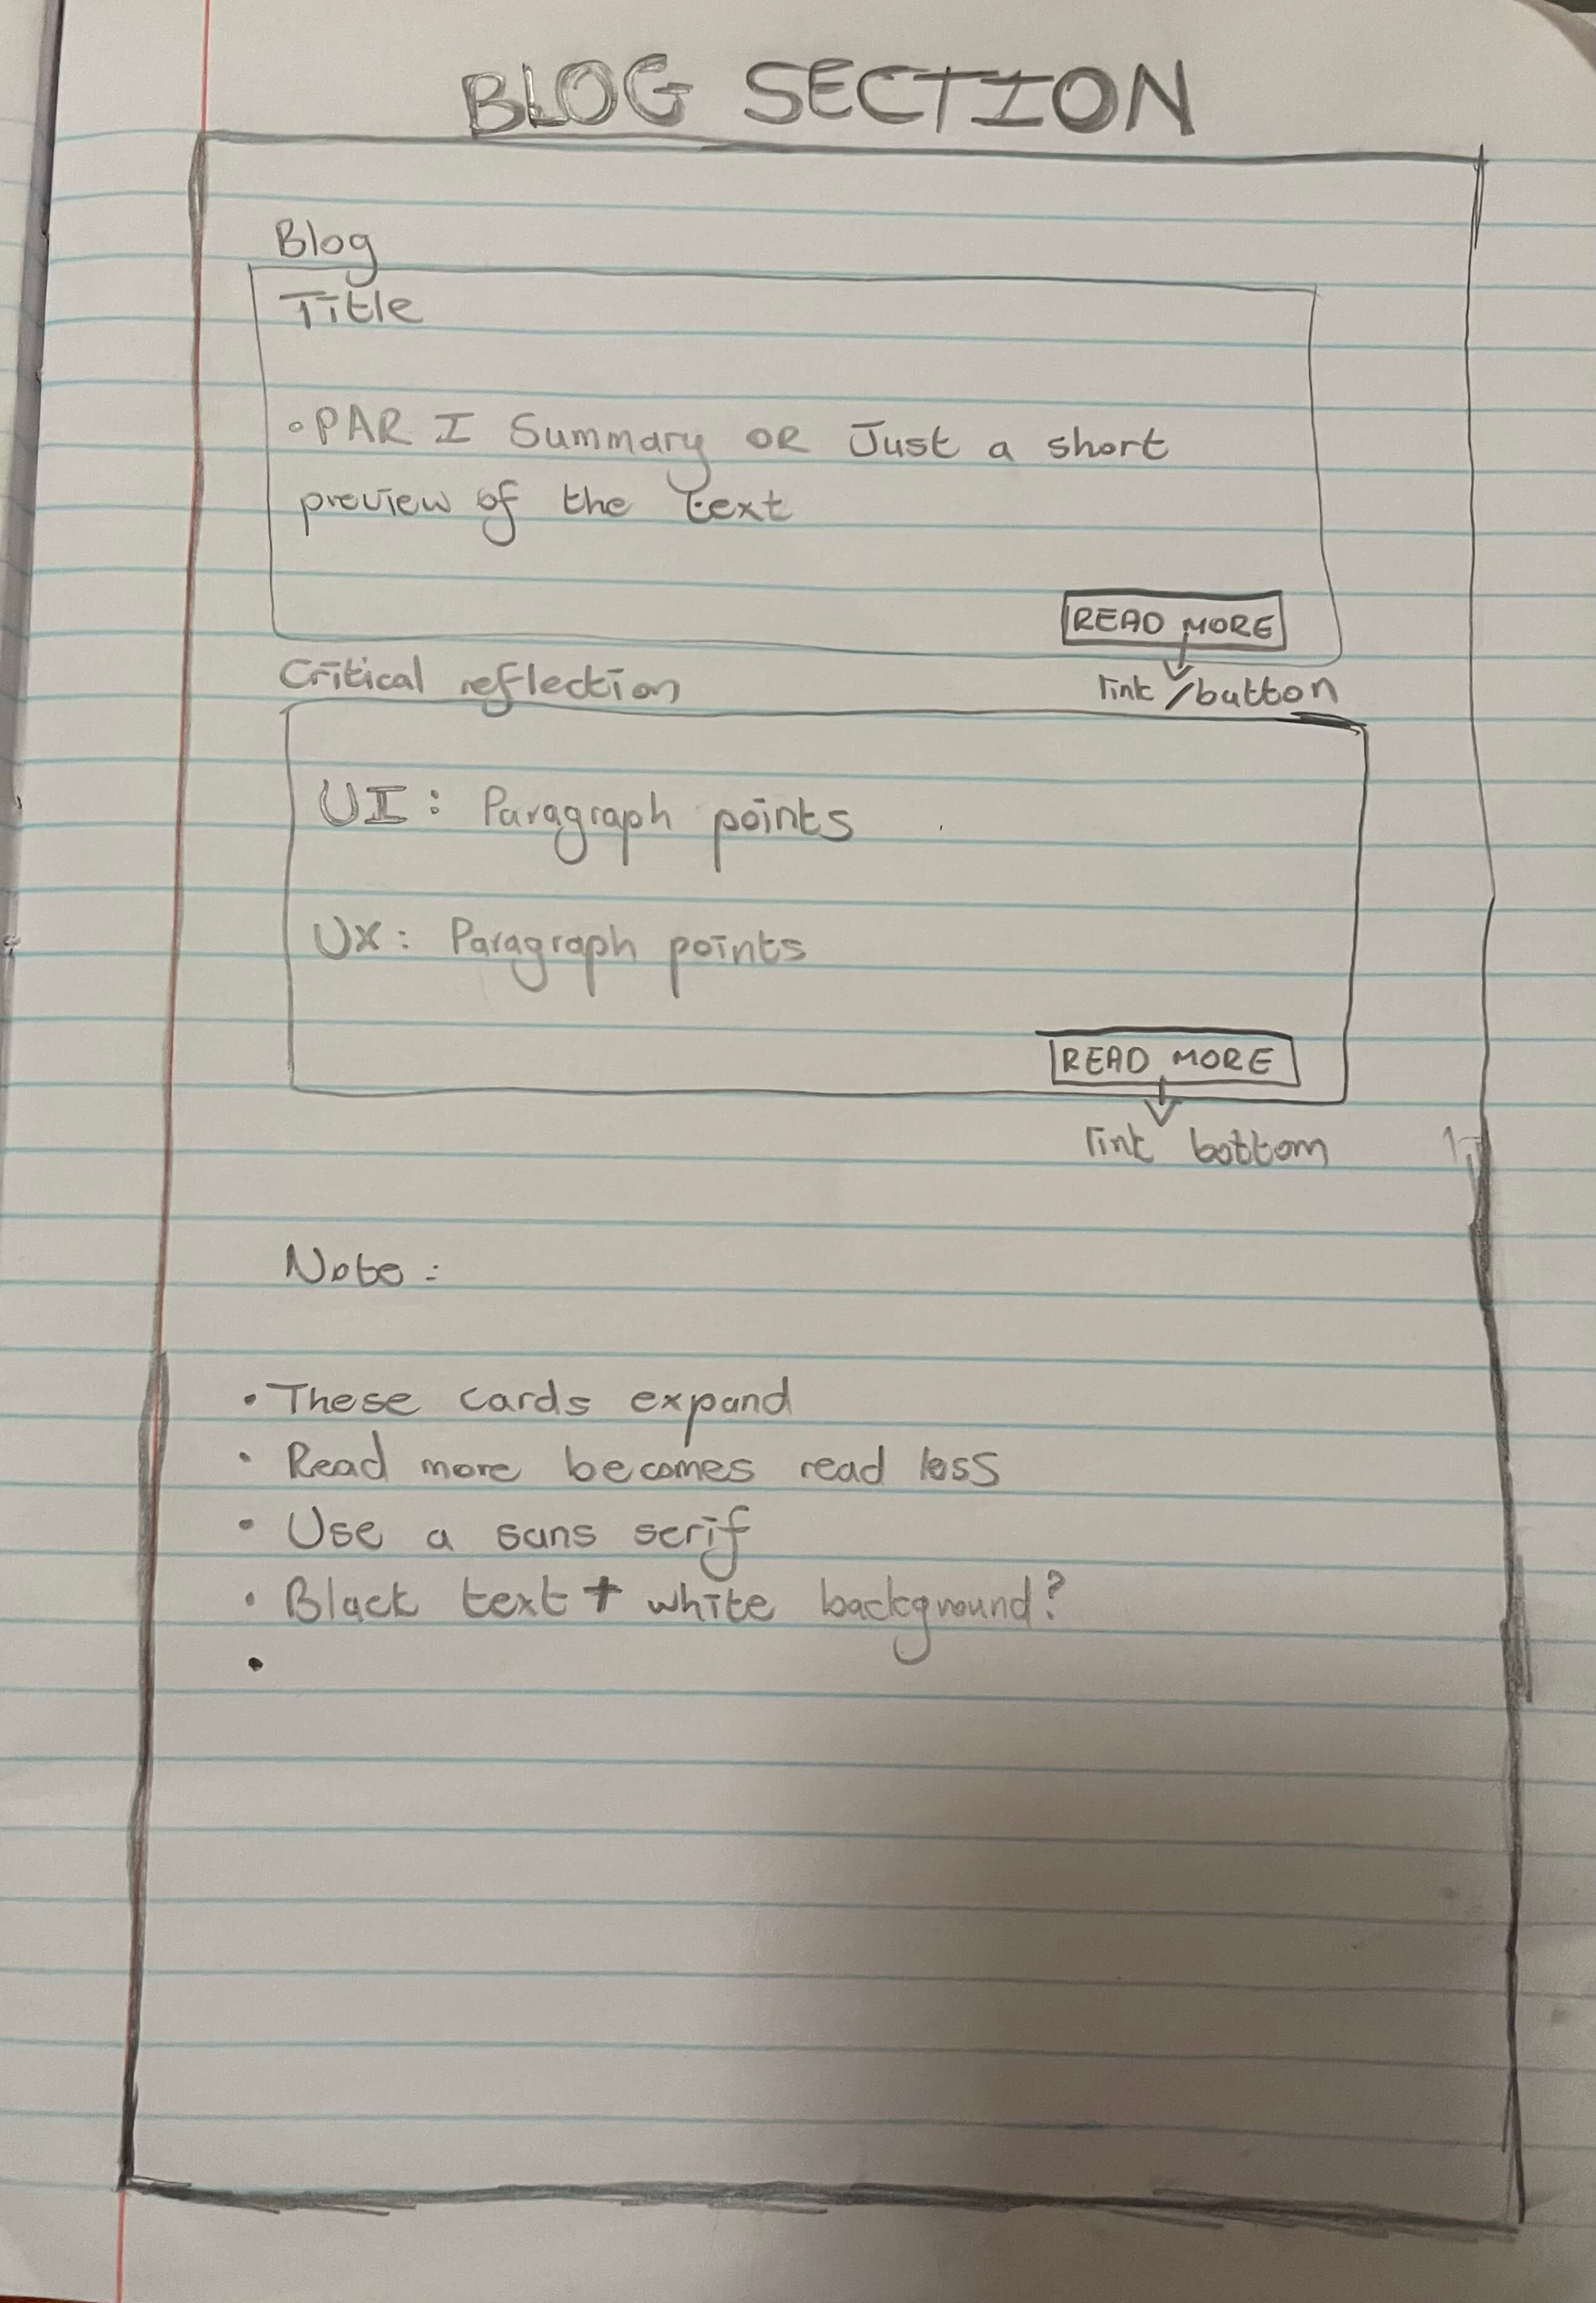 BLOG SECTION
Blog
Title
• PAR I Summary OR Just a short
preview of the text
READ MORE
link/button
Critical reflection
UI: Paragraph points
UX: Paragraph points
READ MORE
link bottom
Note:
• These cards expand
• Read more becomes read less
• Use a sans serif
• Black text + white background?
•